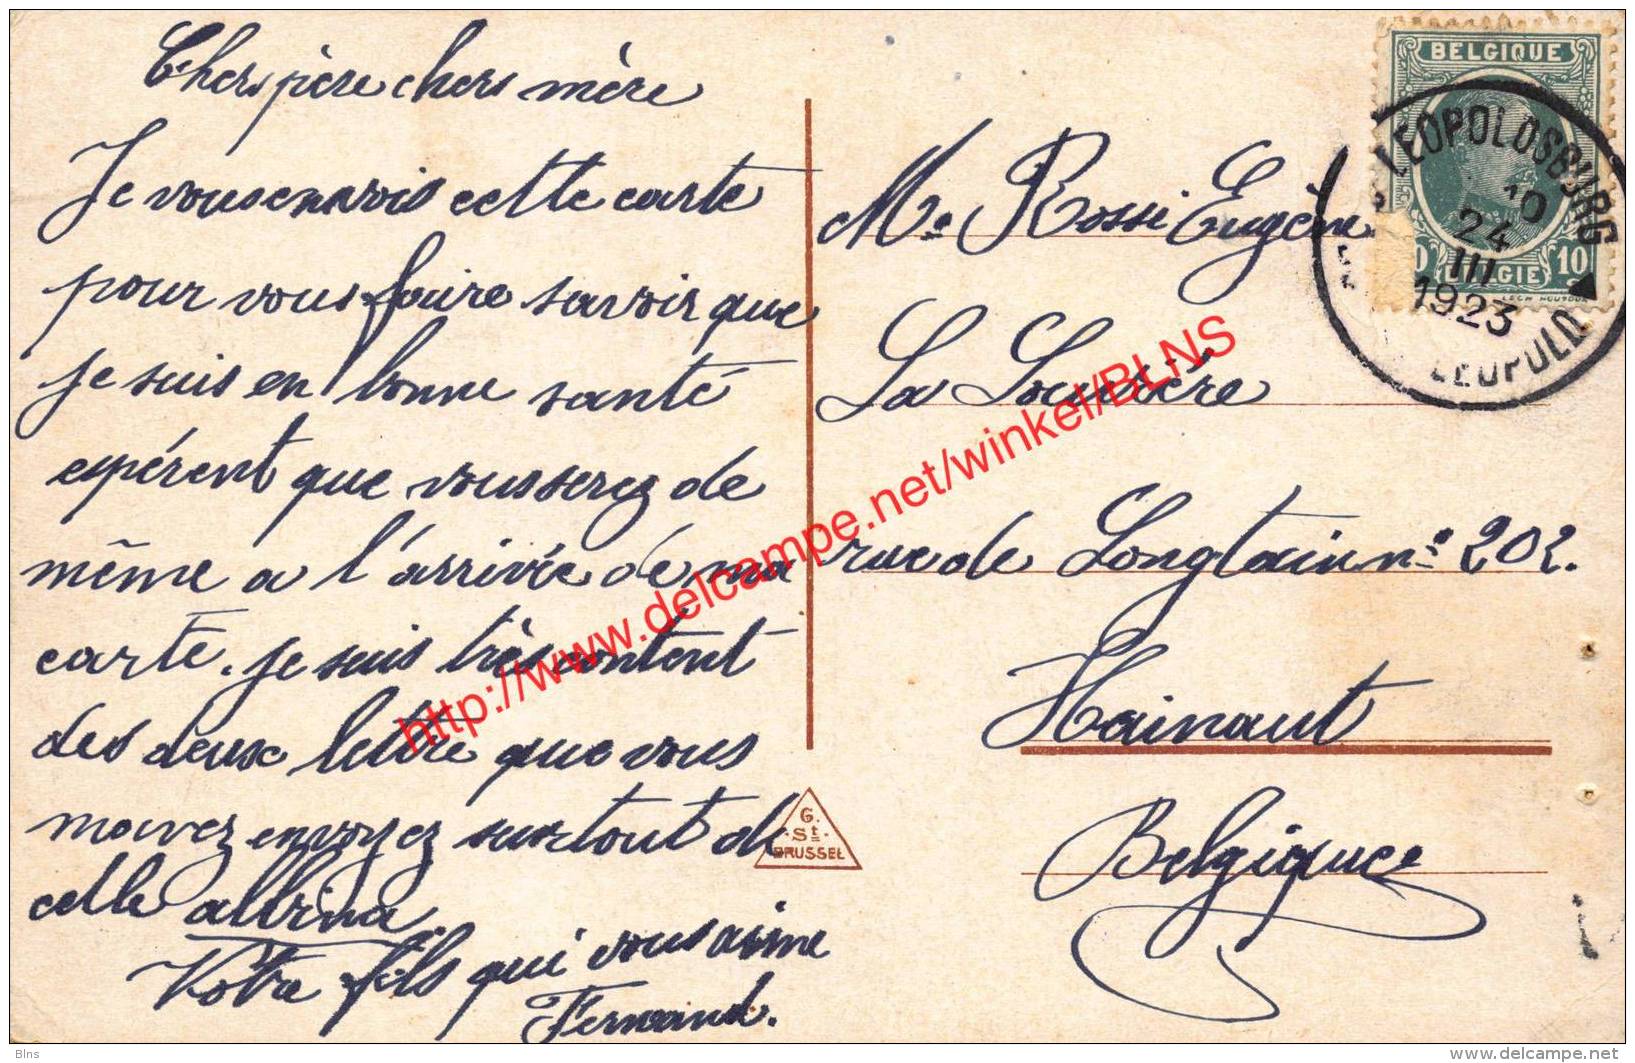 Chers père chers mère
Je vous envois cette carte
pour vous faire savoir que
je suis en bonne santé
espérent que vous serez de
même a l'arrivée de ma
carte. je suis très content
des deux lettre que vous
mavez envoyez surtout de
celle albina
Votre fils qui vous aime
Fernand.
G.
St.
BRUSSEL
BELGIQUE
10
BELGIE
LEOPOLDSBURG
10
24
III
1923
LEOPOLD
Mr Rossi Eugène
La Louvière
rue de Longtain no 202.
Hainaut
Belgique
http://www.delcampe.net/winkel/BLNS
Blns
delcampe.net